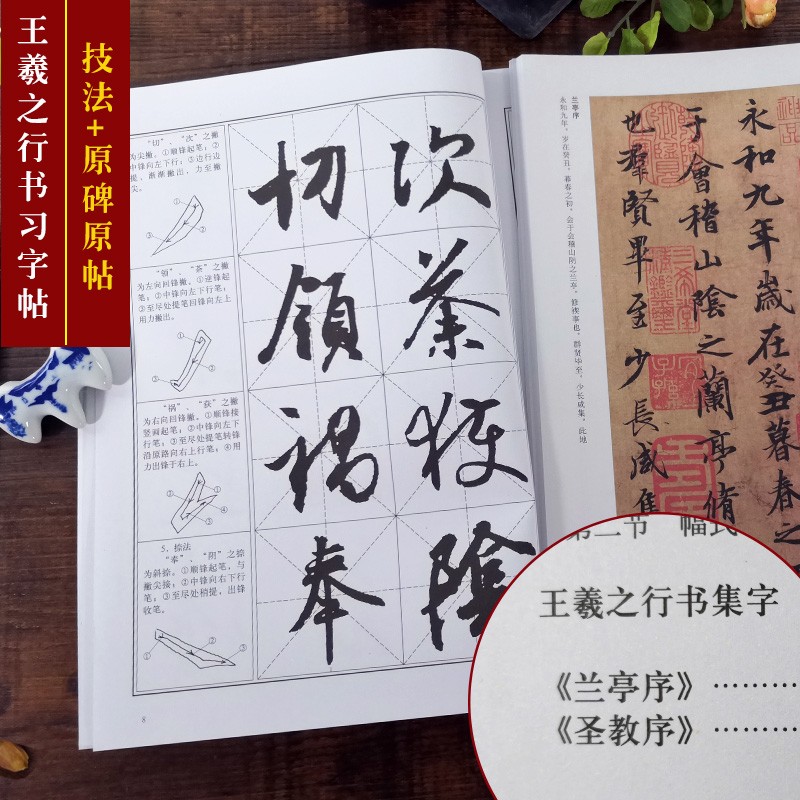 王羲之行书习字帖
技法+原碑原帖
“切”、“次”之撇
为尖撇。①顺锋起笔;②
中锋向左下行;③边行边
提,渐渐撇出,力至撇
尖。
①
②
③
“领”、“茶”之撇
为左向回锋撇。①逆锋起
笔;②中锋向左下行笔;
③至尽处提笔回锋向左上
用力撇出。
①
②
③
“祸”、“获”之撇
为右向回锋撇。①顺锋接
竖画起笔;②中锋向左下
行笔;③至尽处提笔转锋
沿原路向右上行笔;④用
力出锋于右上。
①
②
③
④
5、捺法
“奉”、“阴”之捺
为斜捺。①顺锋起笔,与
撇尖接;②中锋向右下行
笔;③至尽处稍提,出锋
收笔。
①
②
③
切次
領茶
禍獲
奉陰
8
兰亭序
永和九年,岁在癸丑,暮春之初,会于会稽山阴之兰亭,修禊事也。群贤毕至,少长咸集。此地
永和九年歲在癸丑暮春之
于會稽山陰之蘭亭脩
也羣賢畢至少長咸集
第二节 幅式
王羲之行书集字
《兰亭序》………
《圣教序》………